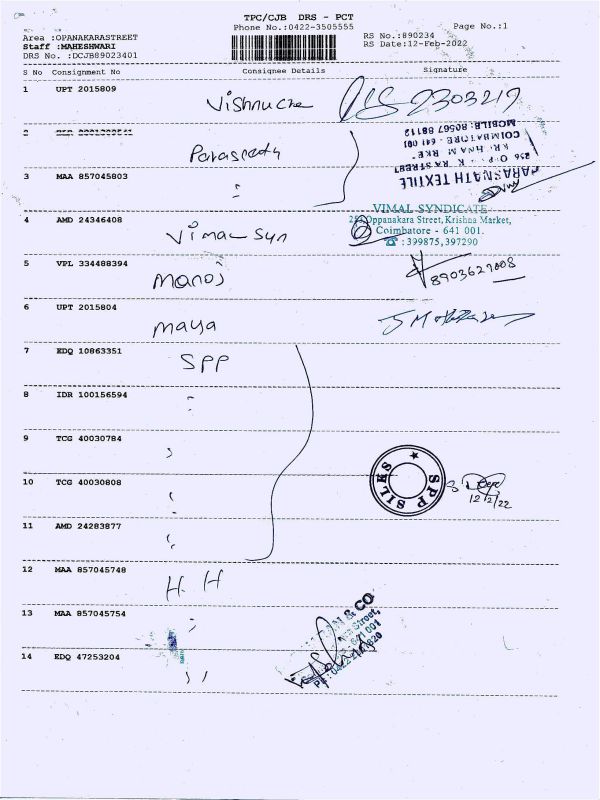 TPC/CJB DRS - PCT
Phone No.:0422-3505555
Page No.:1
Area :OPANAKARASTREET
Staff :MAHESHWARI
DRS No. :DCJB89023401
RS No.:890234
RS Date:12-Feb-2022
S No Consignment No Consignee Details Signature
1 UPT 2015809 Vishnuche
2
Parasnath
3 MAA 857045803 "
PARASNATH TEXTILE
COIMBATORE - 641 001
MOBILE: 80567 88112
4 AMD 24346408 Vimal Syn
VIMAL SYNDICATE
Oppanakara Street, Krishna Market,
Coimbatore - 641 001.
☎ : 399875, 397290
5 VPL 334488394 Manoj
6 UPT 2015804 Maya
7 EDQ 10863351 SPP
8 IDR 100156594 "
9 TCG 40030784 "
10 TCG 40030808 "
SPP SILKS
12/2/22
11 AMD 24283877 "
12 MAA 857045748 H. H
13 MAA 857045754 "
& CO
Street,
641 001
14 EDQ 47253204 "